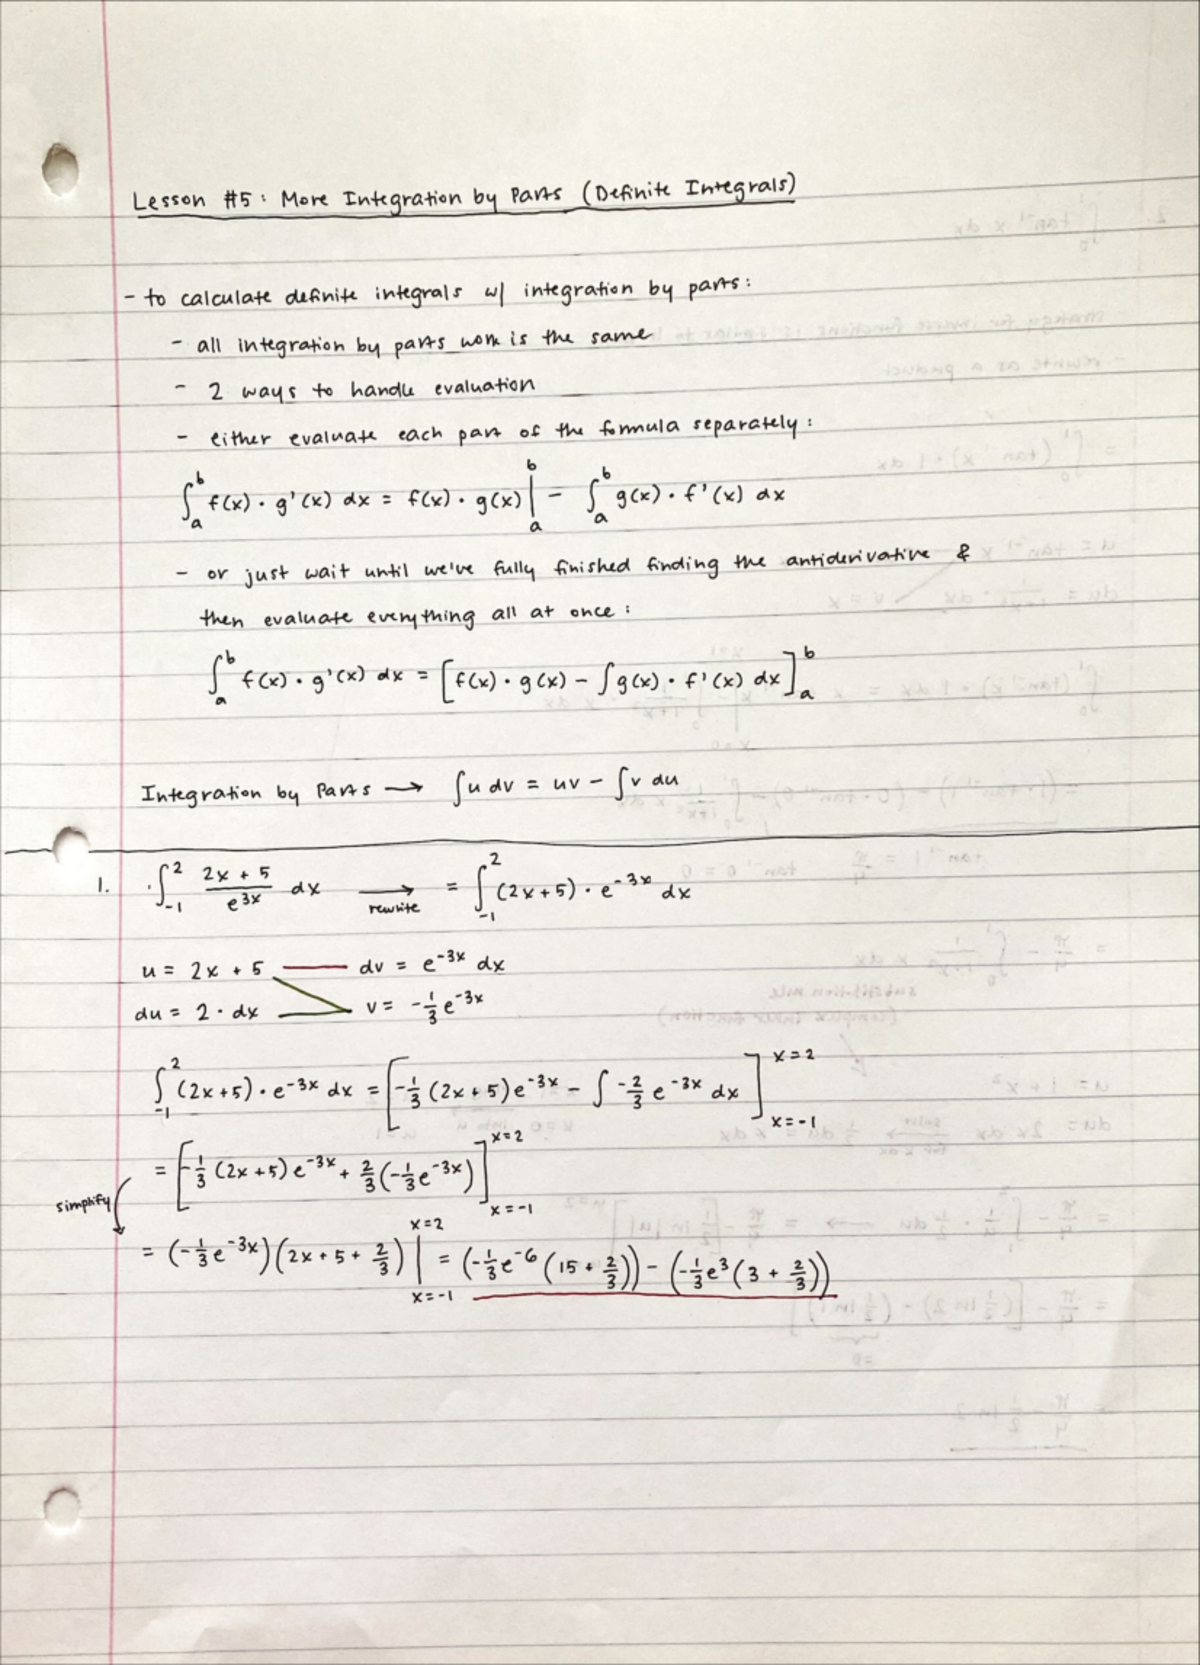 Lesson #5: More Integration by Parts (Definite Integrals)
- to calculate definite integrals w/ integration by parts:
- all integration by parts work is the same
- 2 ways to handle evaluation
- either evaluate each part of the formula separately:
∫_a^b f(x)·g'(x) dx = f(x)·g(x) |_a^b - ∫_a^b g(x)·f'(x) dx
- or just wait until we've fully finished finding the antiderivative &
then evaluate everything all at once:
∫_a^b f(x)·g'(x) dx = [f(x)·g(x) - ∫g(x)·f'(x) dx]_a^b
Integration by Parts → ∫u dv = uv - ∫v du
1. ∫_{-1}^2 (2x + 5)/(e^{3x}) dx → rewrite = ∫_{-1}^2 (2x+5)·e^{-3x} dx
u = 2x + 5 — dv = e^{-3x} dx
du = 2·dx — v = -1/3 e^{-3x}
∫_{-1}^2 (2x+5)·e^{-3x} dx = [-1/3 (2x+5)e^{-3x} - ∫ -2/3 e^{-3x} dx]_{x=-1}^{x=2}
= [-1/3 (2x+5)e^{-3x} + 2/3(-1/3 e^{-3x})]_{x=-1}^{x=2}
simplify
= (-1/3 e^{-3x})(2x+5+2/3) |_{x=-1}^{x=2} = (-1/3 e^{-6}(15+2/3)) - (-1/3 e^3(3+2/3))